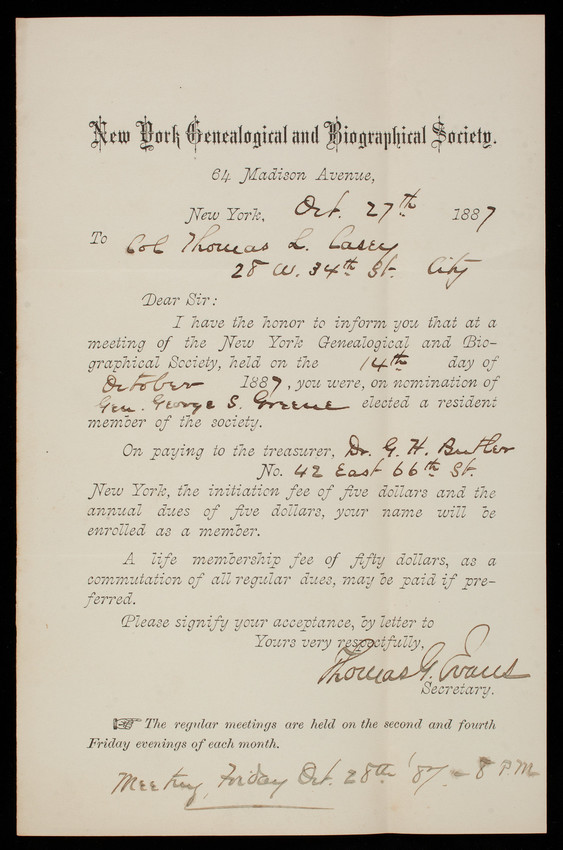 New York Genealogical and Biographical Society.
64 Madison Avenue,
New York, Oct. 27th 1887
To Col Thomas L. Casey
28 W. 34th St. City
Dear Sir:
I have the honor to inform you that at a
meeting of the New York Genealogical and Bio-
graphical Society, held on the 14th day of
October 1887, you were, on nomination of
Gen. George S. Greene elected a resident
member of the society.
On paying to the treasurer, Dr. G. H. Butler
No. 42 East 66th St.
New York, the initiation fee of five dollars and the
annual dues of five dollars, your name will be
enrolled as a member.
A life membership fee of fifty dollars, as a
commutation of all regular dues, may be paid if pre-
ferred.
Please signify your acceptance, by letter to
Yours very respectfully,
Thomas G. Evans
Secretary.
☞ The regular meetings are held on the second and fourth
Friday evenings of each month.
Meeting, Friday Oct. 28th '87. - 8 P.M.